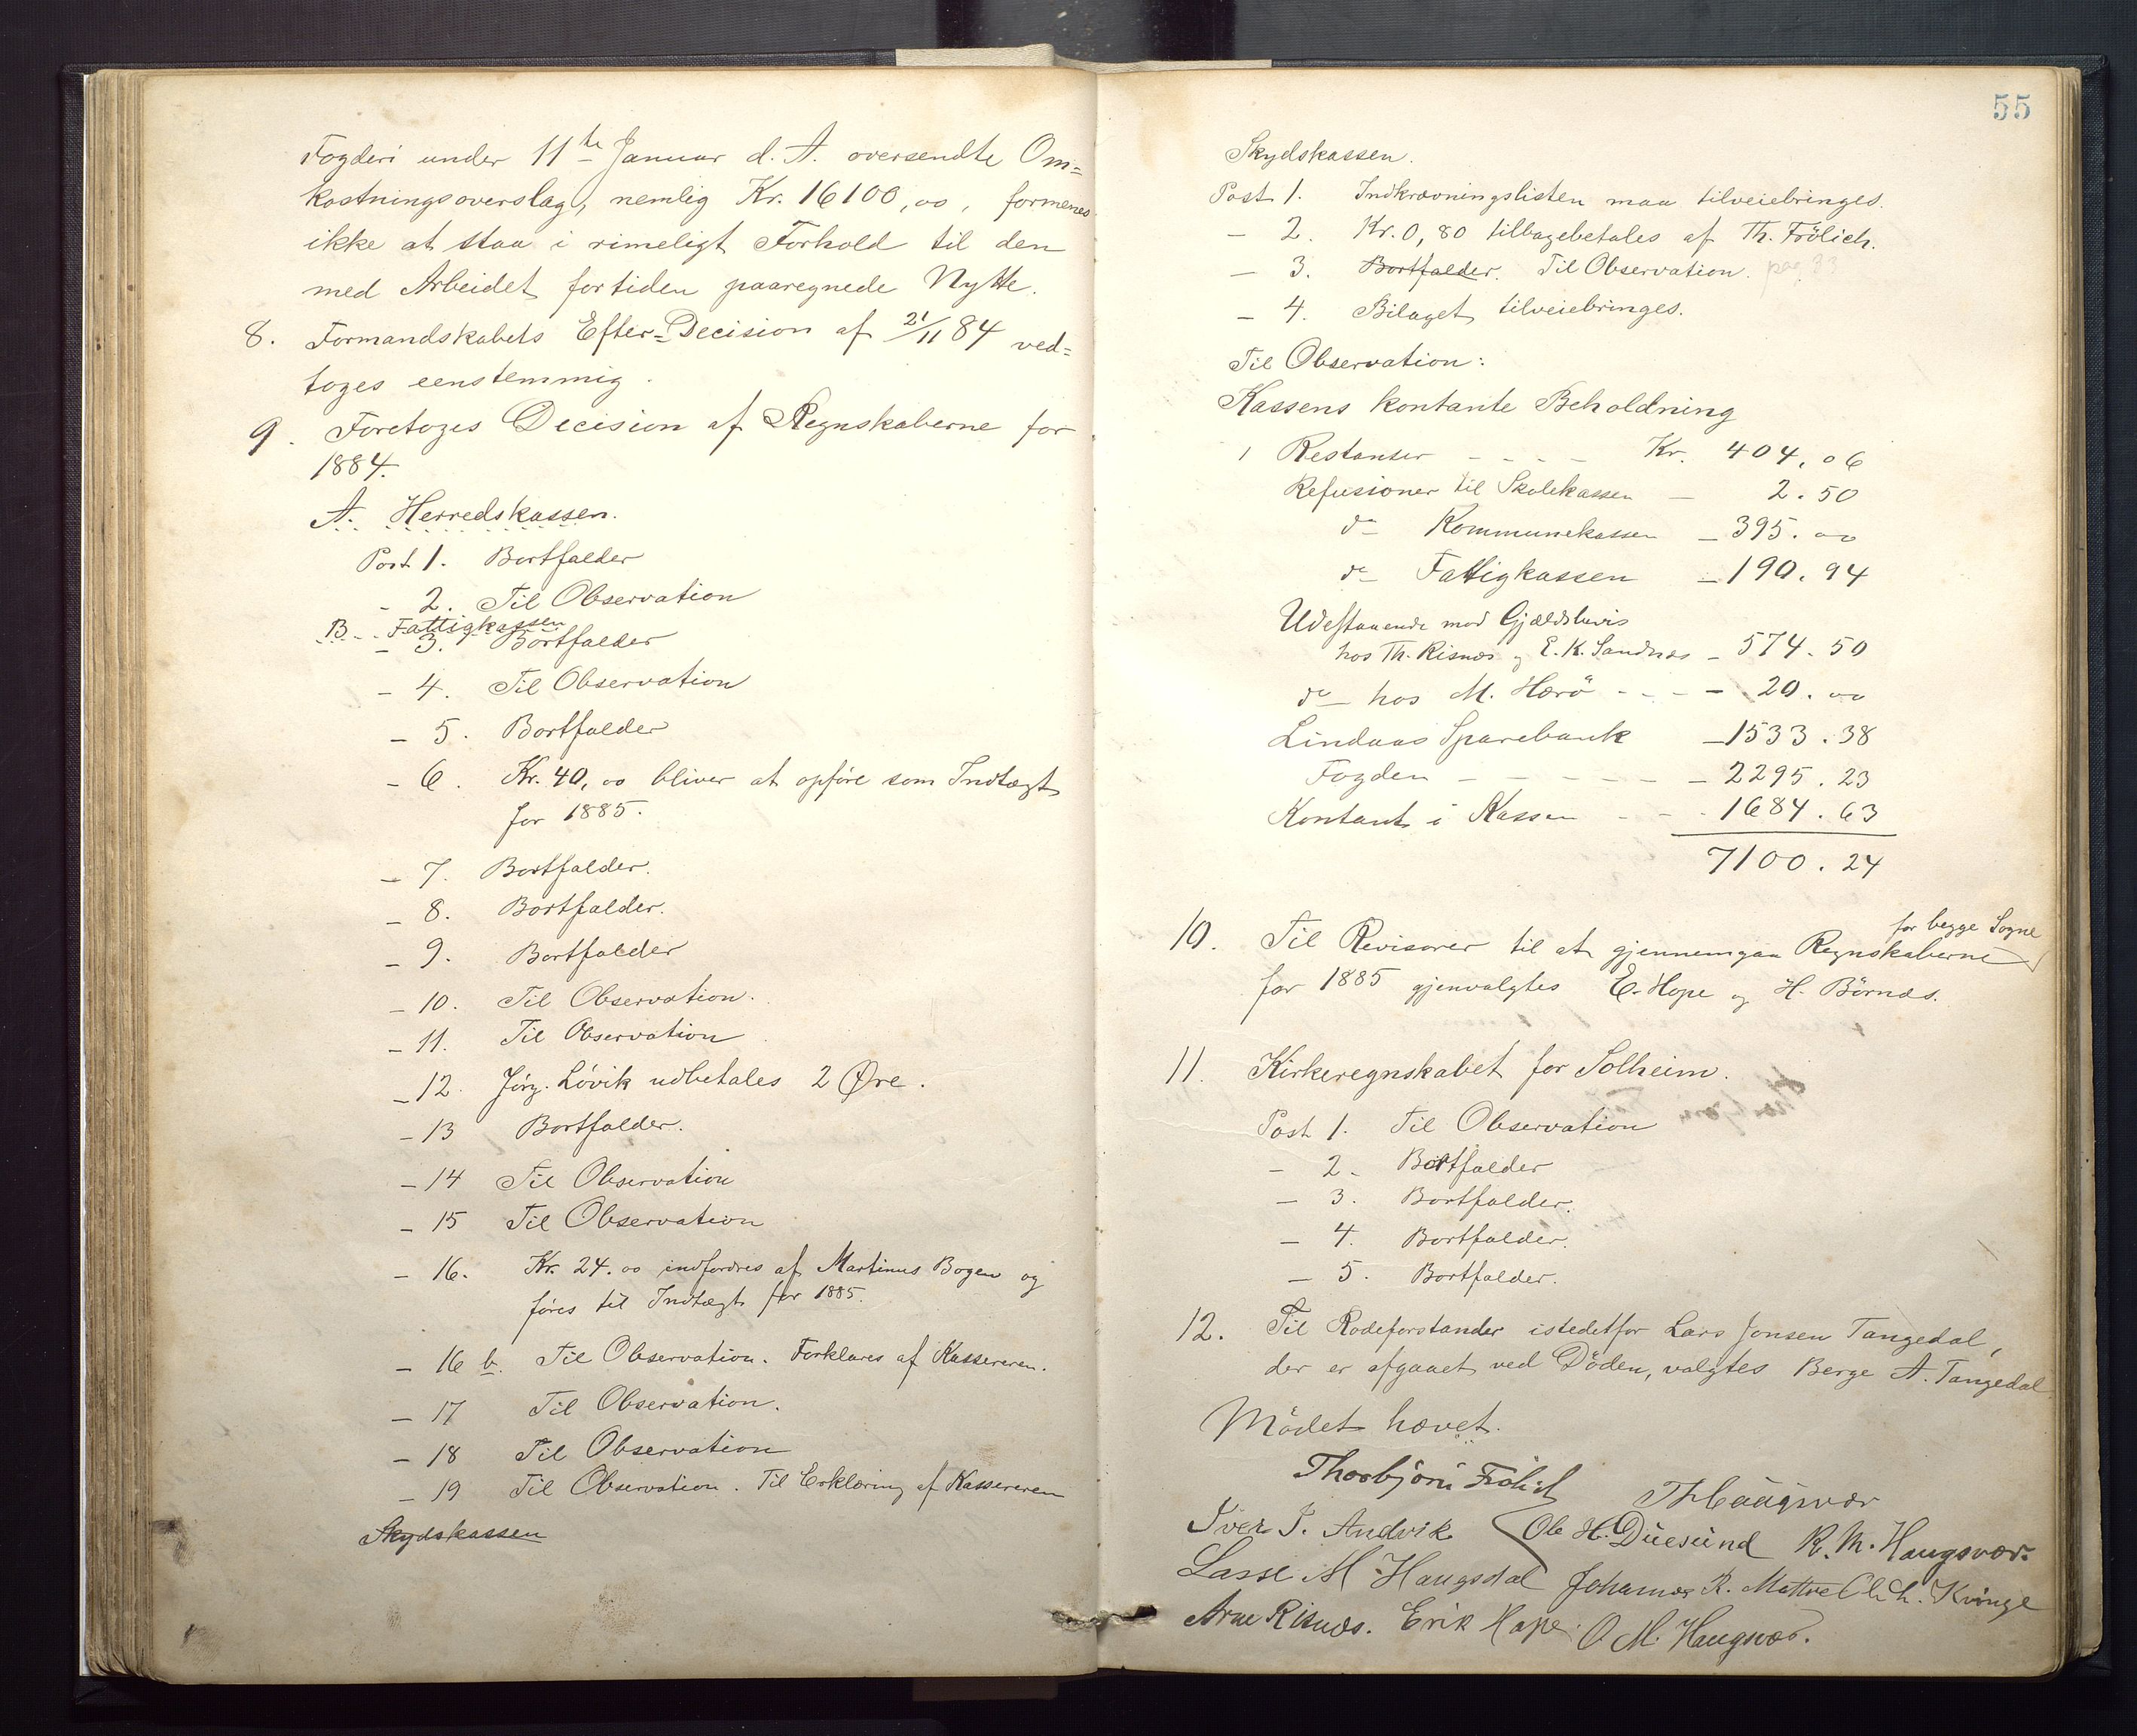 Fogderi under 11te Januar d. A. oversendte Om=
kostningsoverslag, nemlig Kr. 16100,00, formenes
ikke at staa i rimeligt Forhold til den
med Arbeidet fortiden paaregnede Nytte.
8. Formandskabets Efter=Decision af 21/11 84 ved=
toges eenstemmig.
9. Foretoges Decision af Regnskaberne for
1884.
A. Herredskassen.
Post 1. Bortfalder
- 2. Til Observation
B. Fattigkassen
- 3. Bortfalder
- 4. Til Observation
- 5. Bortfalder
- 6. Kr. 40,00 bliver at opføre som Indtægt
for 1885.
- 7. Bortfalder.
- 8. Bortfalder.
- 9. Bortfalder
- 10. Til Observation.
- 11. Til Observation
- 12. Jörg. Lövik udbetales 2 Øre.
- 13 Bortfalder.
- 14 Til Observation
- 15 Til Observation
- 16. Kr. 24.00 indfordres af Martinus Bogen og
föres til Indtægt for 1885.
- 16 b. Til Observation. Forklares af Kassereren.
- 17 Til Observation.
- 18 Til Observation
- 19 Til Observation. Til Erklæring af Kassereren
Skydskassen
55
Skydskassen.
Post 1. Indkrævningslisten maa tilveiebringes.
- 2. Kr. 0,80 tilbagebetales af Th. Frölich.
- 3. Bortfalder. Til Observation. pag 33
- 4. Bilaget tilveiebringes.
Til Observation:
Kassens kontante Beholdning
1 Restanser - - - - Kr. 404,06
Refusioner til Skolekassen - 2.50
do Kommunekassen - 395.00
do Fattigkassen - 190.94
Udestaaende mod Gjældsbevis
hos Th. Risnæs og E. K. Sandnæs - 574.50
do hos M. Herö - - - - 20.00
Lindaas Sparebank - 1533.38
Fogden - - - - - - 2295.23
Kontant i Kassen - - - 1684.63
7100.24
for begge Sogne
10. Til Revisorer til at gjennemgaa Regnskaberne
for 1885 gjenvalgtes E. Hope og H. Börnæs.
11. Kirkeregnskabet for Solheim.
Post 1. Til Observation
- 2. Bortfalder
- 3. Bortfalder.
- 4. Bortfalder.
- 5. Bortfalder.
12. Til Rodeforstander istedetfor Lars Jonsen Tangedal,
der er afgaaet ved Döden, valgtes Berge A. Tangedal
Mödet hævet.
Thorbjörn Frölich
Th Haugsvær
Iver I. Andvik Ole H. Duesund R. M. Haugsvær.
Lasse M Haugsdal Johannes R. Mattre Ole L. Kvinge
Arne Risnæs. Erik Hope. O M. Haugsvær.